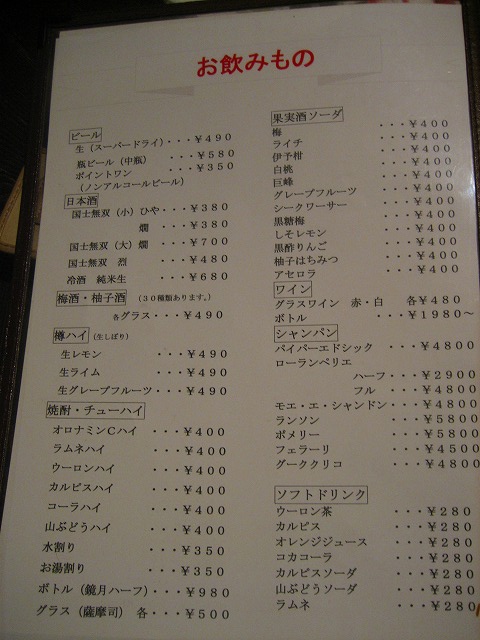 お飲みもの
ビール
生（スーパードライ）・・・￥４９０
瓶ビール（中瓶）　・・・￥５８０
ポイントワン　・・・￥３５０
（ノンアルコールビール）
日本酒
国士無双（小）ひや・・・￥３８０
燗　・・・￥３８０
国士無双（大）燗　・・・￥７００
国士無双　烈　・・・￥４８０
冷酒　純米生　・・・￥６８０
梅酒・柚子酒　（３０種類あります。）
各グラス・・・￥４９０
樽ハイ（生しぼり）
生レモン　・・・￥４９０
生ライム　・・・￥４９０
生グレープフルーツ・・・￥４９０
焼酎・チューハイ
オロナミンＣハイ　・・・￥４００
ラムネハイ　・・・￥４００
ウーロンハイ　・・・￥４００
カルピスハイ　・・・￥４００
コーラハイ　・・・￥４００
山ぶどうハイ　・・・￥４００
水割り　・・・￥３５０
お湯割り　・・・￥３５０
ボトル（鏡月ハーフ）・・・￥９８０
グラス（薩摩司）　各・・・￥５００
果実酒ソーダ
梅　・・・￥４００
ライチ　・・・￥４００
伊予柑　・・・￥４００
白桃　・・・￥４００
巨峰　・・・￥４００
グレープフルーツ　・・・￥４００
シークワーサー　・・・￥４００
黒糖梅　・・・￥４００
しそレモン　・・・￥４００
黒酢りんご　・・・￥４００
柚子はちみつ　・・・￥４００
アセロラ　・・・￥４００
ワイン
グラスワイン　赤・白　各￥４８０
ボトル　・・・￥１９８０～
シャンパン
パイパーエドシック　・・・￥４８００
ローランペリエ
ハーフ・・・￥２９００
フル　・・・￥４８００
モエ・エ・シャンドン・・・￥４８００
ランソン　・・・￥５８００
ポメリー　・・・￥５８００
フェラーリ　・・・￥４５００
グーククリコ　・・・￥４８００
ソフトドリンク
ウーロン茶　・・・￥２８０
カルピス　・・・￥２８０
オレンジジュース　・・・￥２８０
コカコーラ　・・・￥２８０
カルピスソーダ　・・・￥２８０
山ぶどうソーダ　・・・￥２８０
ラムネ　・・・￥２８０